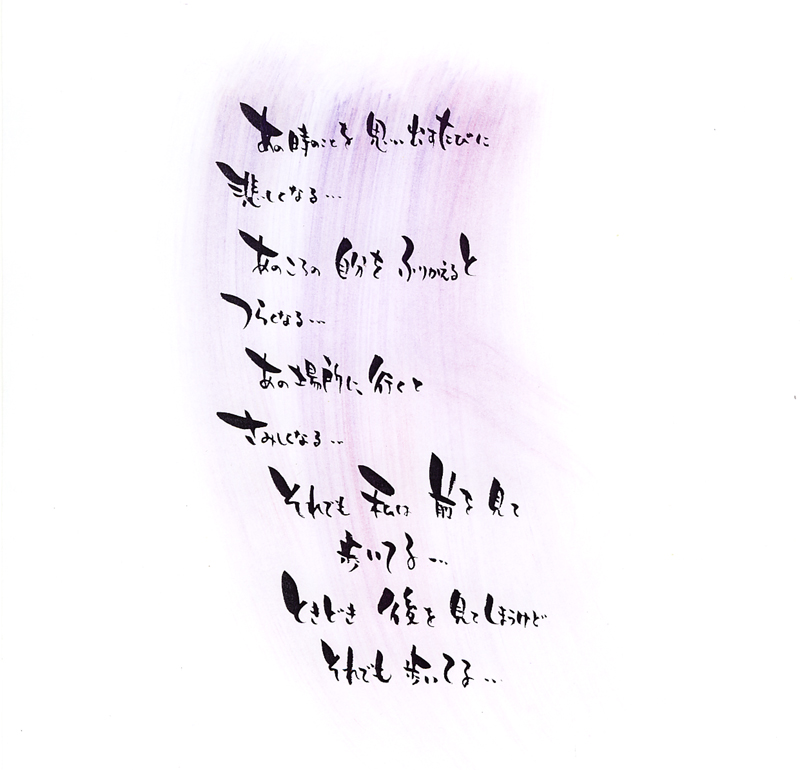 あの時のことを 思い出すたびに
悲しくなる…
あのころの 自分を ふりかえると
つらくなる…
あの場所に 行くと
さみしくなる…
それでも 私は 前を 見て
歩いてる…
ときどき 後を 見てしまうけど
それでも 歩いてる…